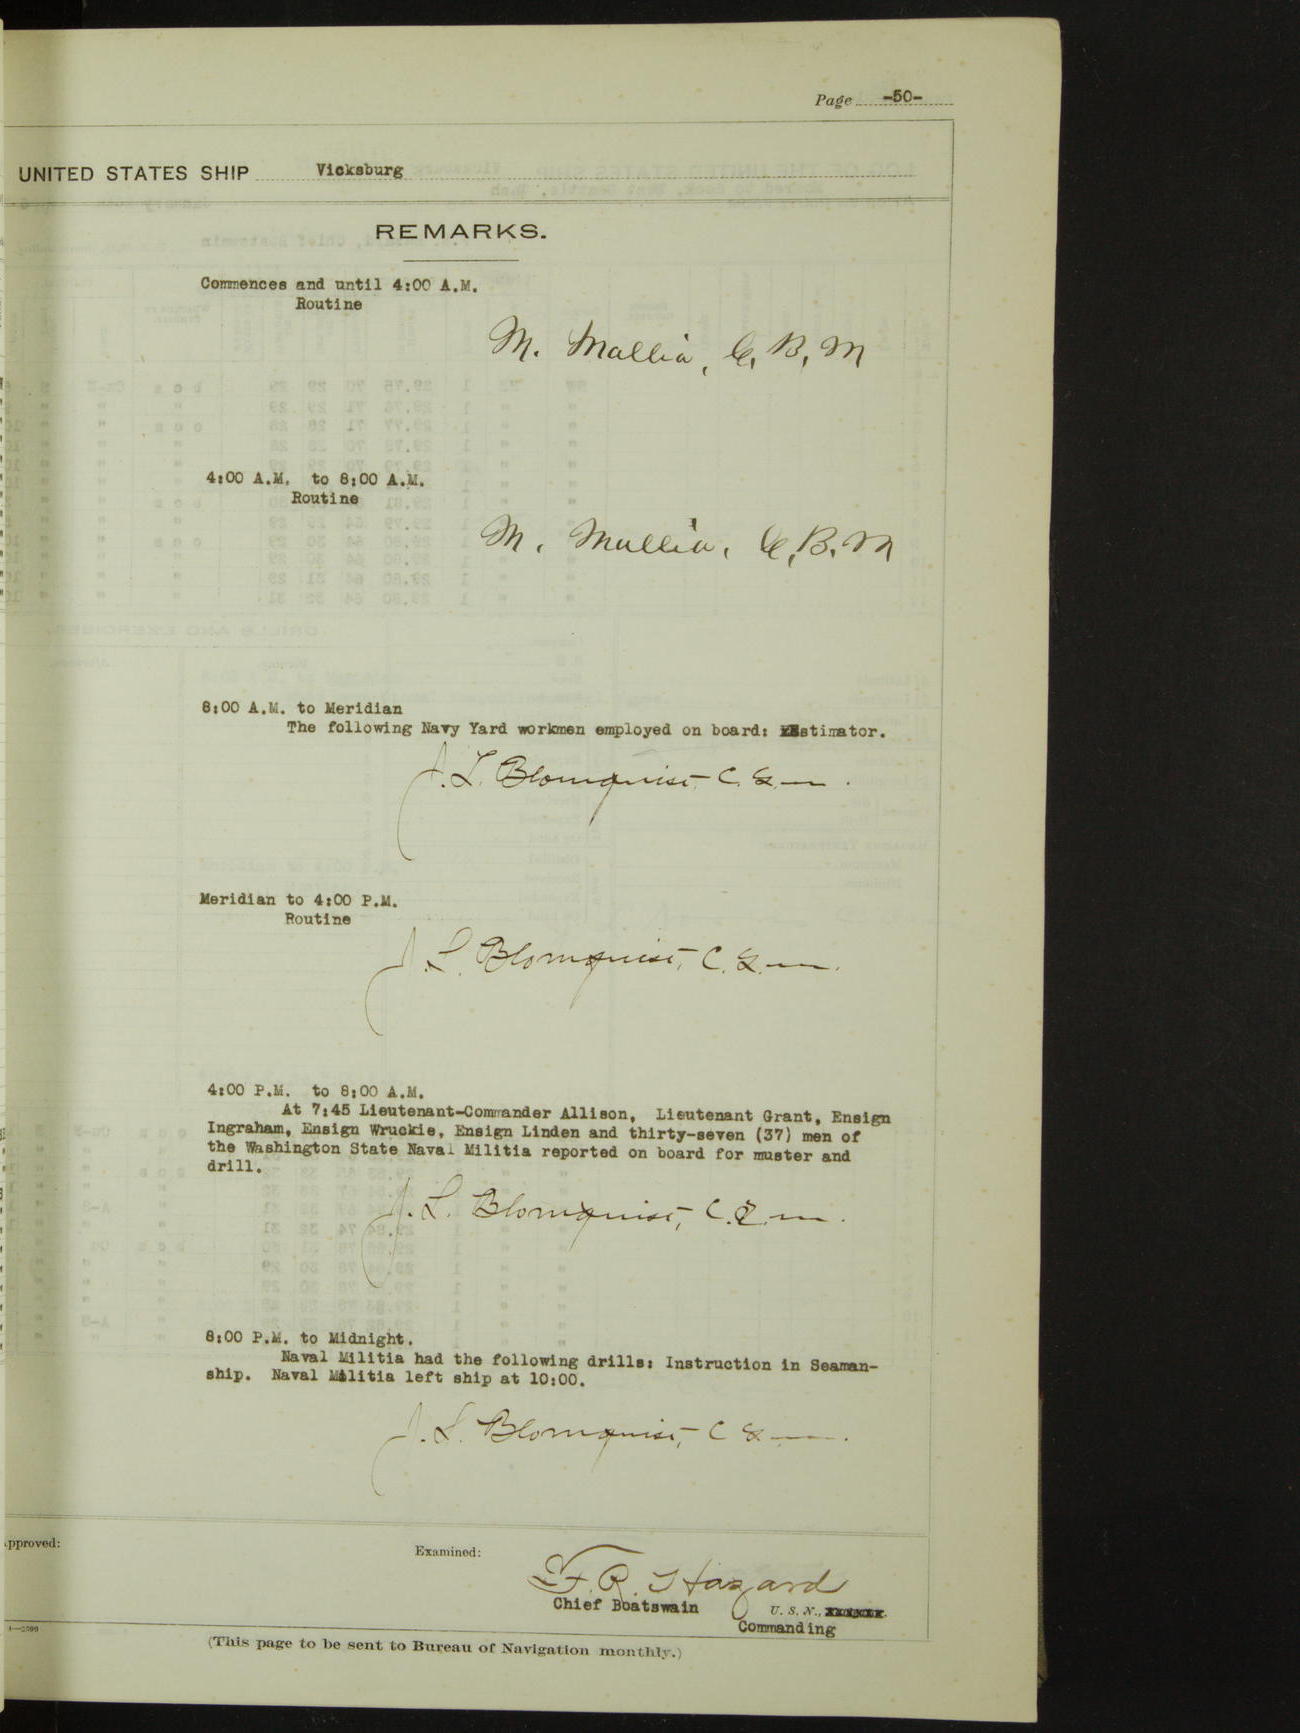 Page -50-
UNITED STATES SHIP Vicksburg
REMARKS.
Commences and until 4:00 A.M.
Routine
M. Mallia, C, B, M
4:00 A.M. to 8:00 A.M.
Routine
M. Mallia, C, B. M
8:00 A.M. to Meridian
The following Navy Yard workmen employed on board: Estimator.
J. L. Blomquist C. G. m.
Meridian to 4:00 P.M.
Routine
J. L. Blomquist, C. G. m.
4:00 P.M. to 8:00 A.M.
At 7:45 Lieutenant-Commander Allison, Lieutenant Grant, Ensign
Ingraham, Ensign Wruckie, Ensign Linden and thirty-seven (37) men of
the Washington State Naval Militia reported on board for muster and
drill.
J. L. Blomquist, C. G. m.
8:00 P.M. to Midnight.
Naval Militia had the following drills: Instruction in Seaman-
ship. Naval Militia left ship at 10:00.
J. L. Blomquist, C G m.
pproved:
Examined:
F. R. Hazard
Chief Boatswain U. S. N.,
Commanding
(This page to be sent to Bureau of Navigation monthly.)